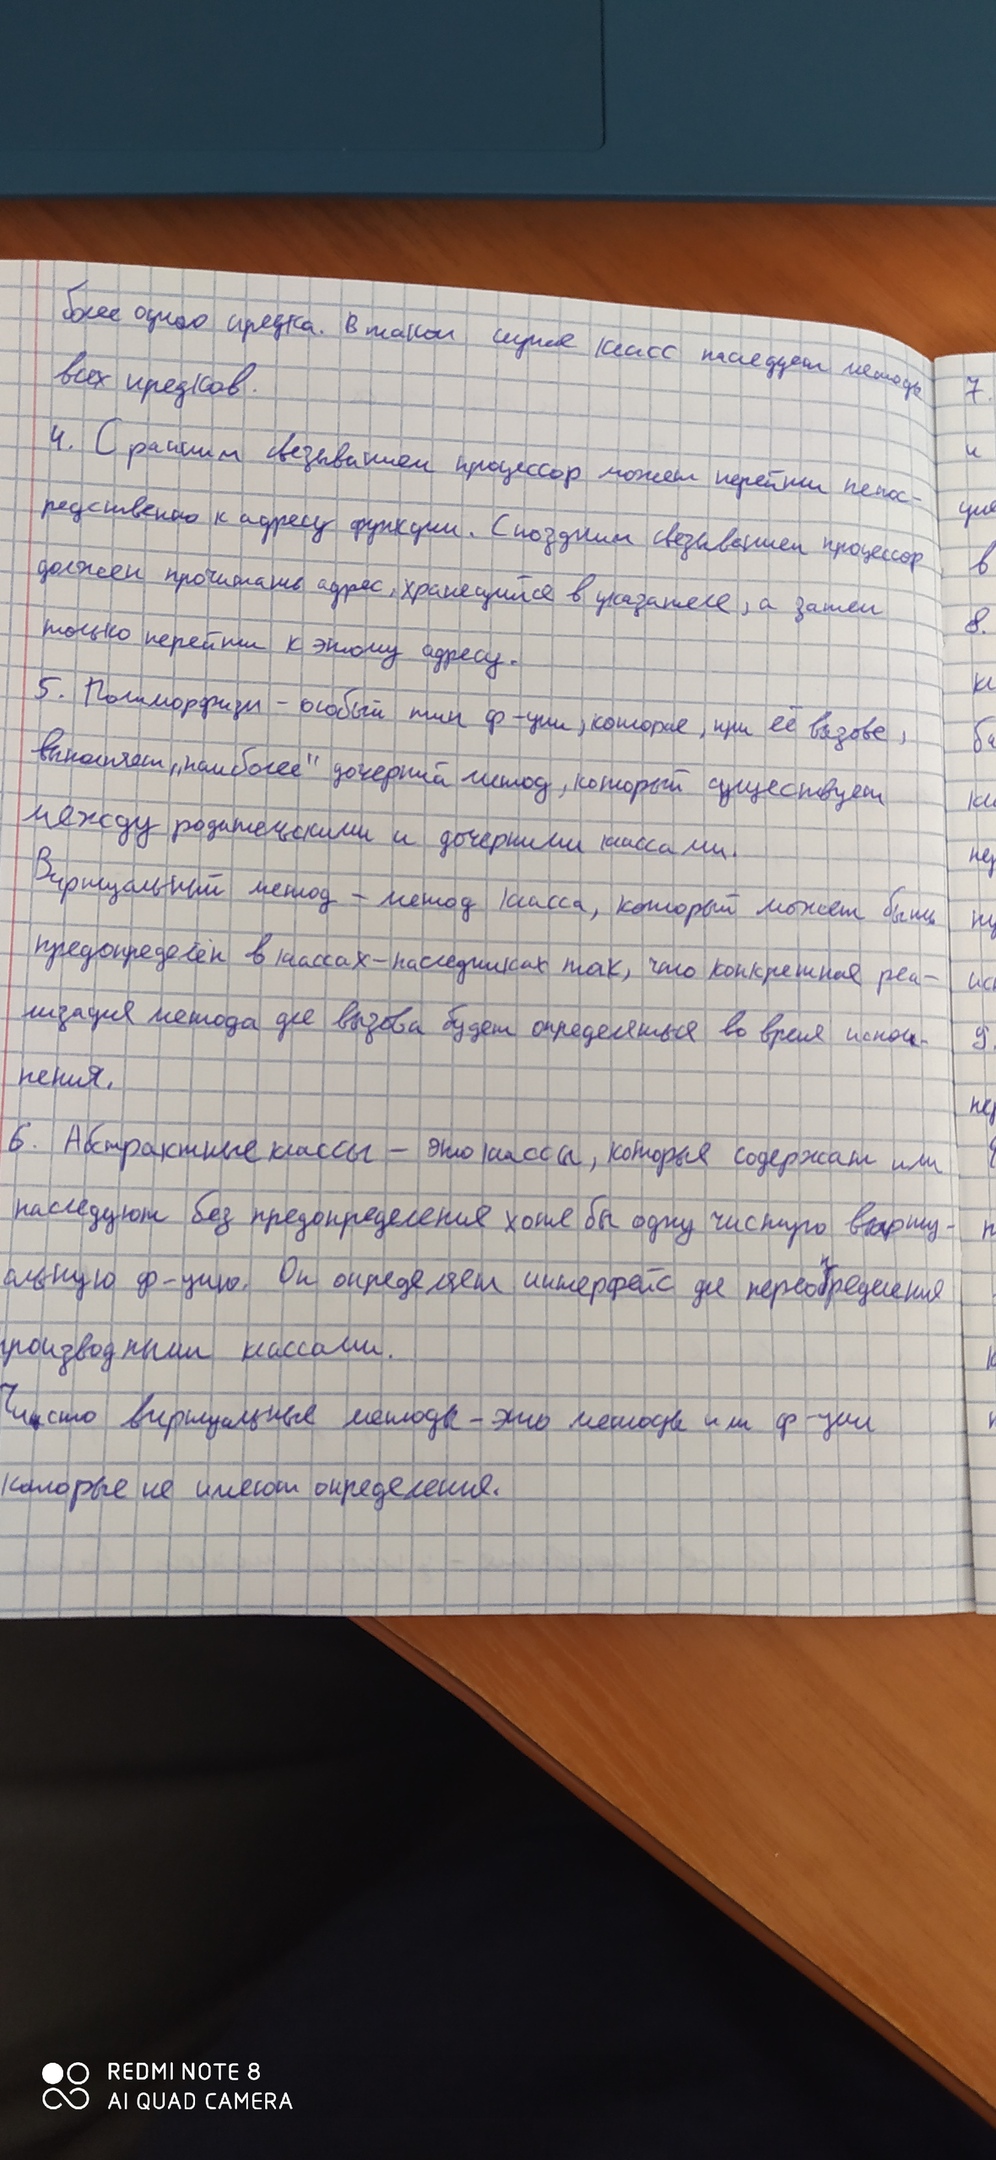 более одного предка. В таком случае класс наследует методы
всех предков.
4. С ранним связыванием процессор может перейти непос-
редственно к адресу функции. С поздним связыванием процессор
должен прочитать адрес, хранящийся в указателе, а затем
только перейти к этому адресу.
5. Полиморфизм - особый тип ф-ции, которая, при её вызове,
выполняет „наиболее" дочерний метод, который существует
между родительскими и дочерними классами.
Виртуальный метод - метод класса, который может быть
предопределён в классах-наследниках так, что конкретная реа-
лизация метода для вызова будет определяться во время испол-
нения.
6. Абстрактные классы - это классы, которые содержат или
наследуют без предопределения хотя бы одну чистую вирту-
альную ф-цию. Он определяет интерфейс для переопределения
производными классами.
Чисто виртуальные методы - это методы или ф-ции
которые не имеют определения.
7.
и
в
8.
9.
REDMI NOTE 8
AI QUAD CAMERA